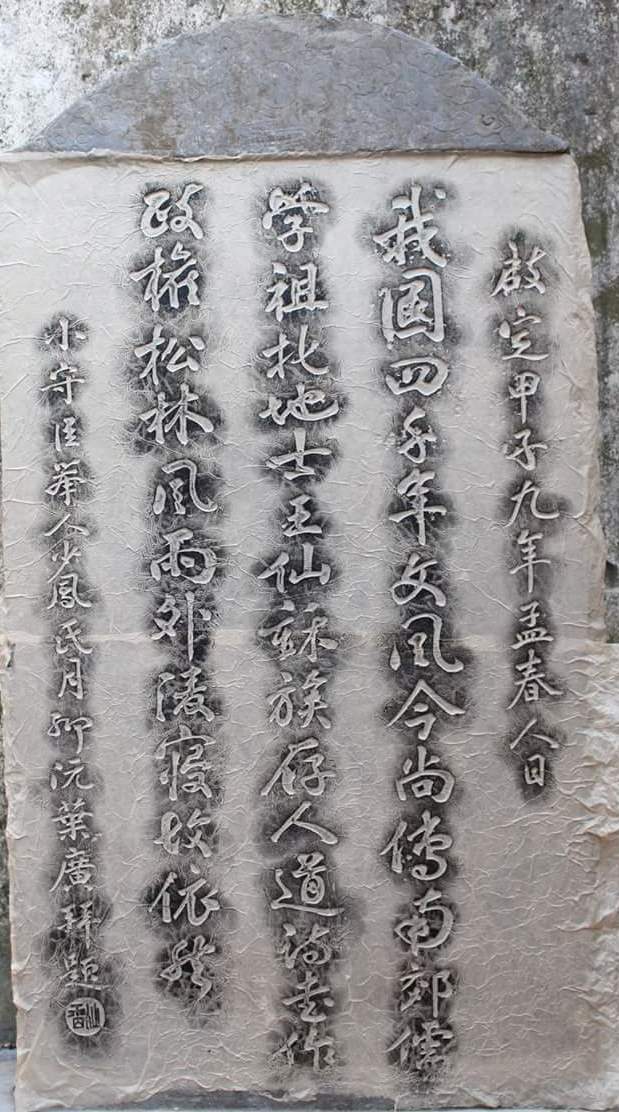 啟定甲子九年孟春人日
我國四千年文風今尚傳南郊儒
学祖北地士王仙族存人道詩書作
政權松林風雨外陵寢故依然
小守臣舉人少鳳氏月卿阮葉廣拜題